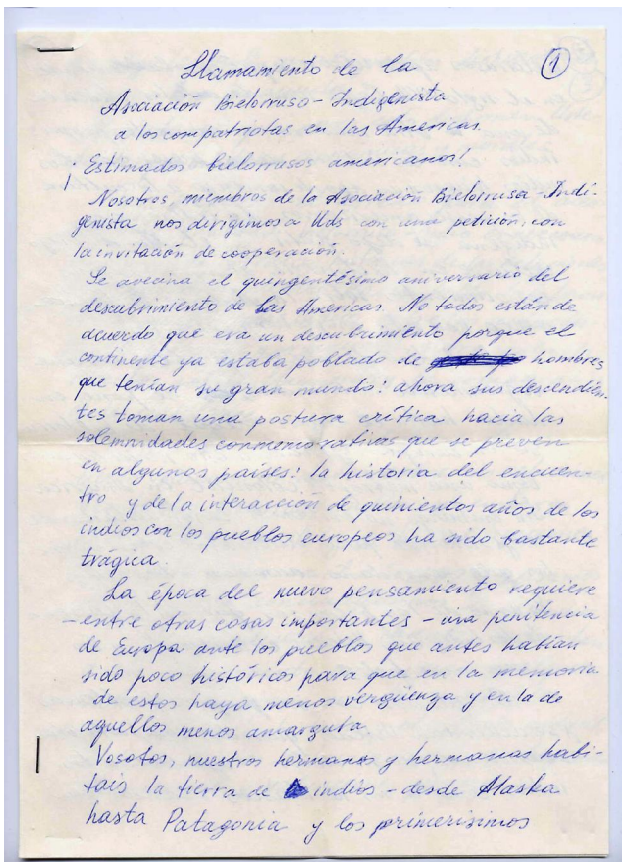 Llamamiento de la
1
Asociación Bielorruso-Indigenista
a los compatriotas en las Américas.
¡Estimados bielorrusos americanos!
Nosotros, miembros de la Asociación Bielorrusa-Indi-
genista nos dirigimos a Uds con una petición, con
la invitación de cooperación.
Se avecina el quingentésimo aniversario del
descubrimiento de las Américas. No todos están de
acuerdo que era un descubrimiento porque el
continente ya estaba poblado de hombres
que tenían su gran mundo: ahora sus descendien-
tes toman una postura crítica hacia las
solemnidades conmemorativas que se preven
en algunos países: la historia del encuen-
tro y de la interacción de quinientos años de los
indios con los pueblos europeos ha sido bastante
trágica.
La época del nuevo pensamiento requiere
- entre otras cosas importantes - una penitencia
de Europa ante los pueblos que antes habían
sido poco históricos para que en la memoria
de estos haya menos vergüenza y en la de
aquellos menos amargura.
Vosotos, nuestros hermanos y hermanas habi-
tais la tierra de indios - desde Alaska
hasta Patagonia y los primerísimos